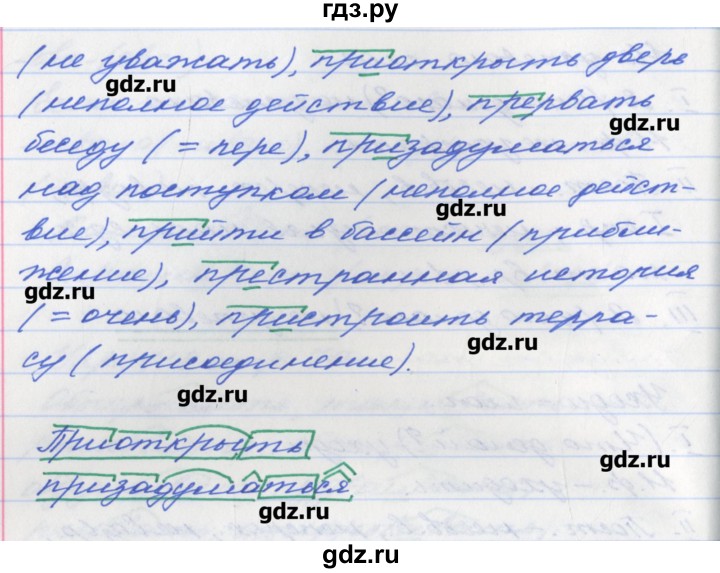 гдз.ру
(не уважать), приоткрыть дверь
gdz.ru
(неполное действие), прервать
gdz.ru
беседу (= пере), призадуматься
над поступком (неполное дейст-
gdz.ru
вие), прийти в бассейн (прибли-
жение), престранная история
gdz.ru
(= очень), пристроить терра-
gdz.ru
су (присоединение).
gdz.ru
Приоткрыть
gdz.ru
призадуматься
gdz.ru
gdz.ru